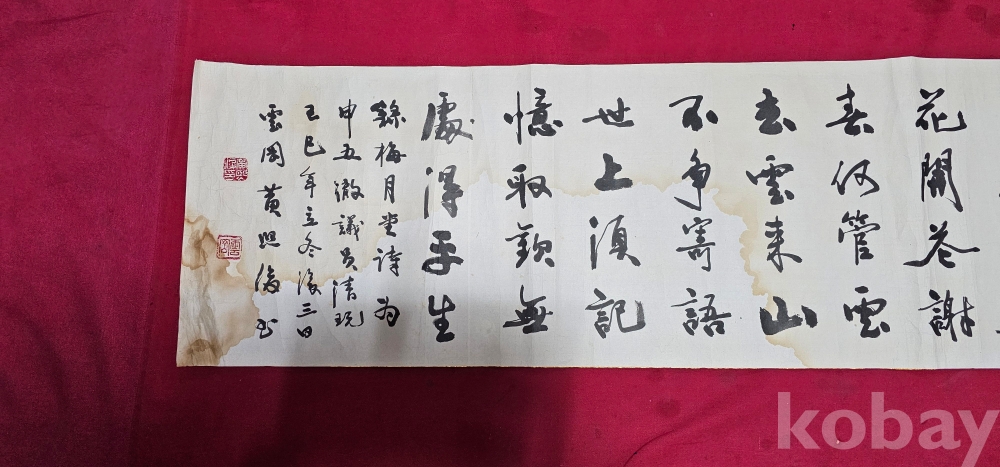 花開花謝
春何管雲
去雲來山
不爭寄語
世上須記
憶取歡無
處得平生
錄梅月堂詩為
申五澈議員清玩
己巳年立冬後三日
雲岡黃書
kobay